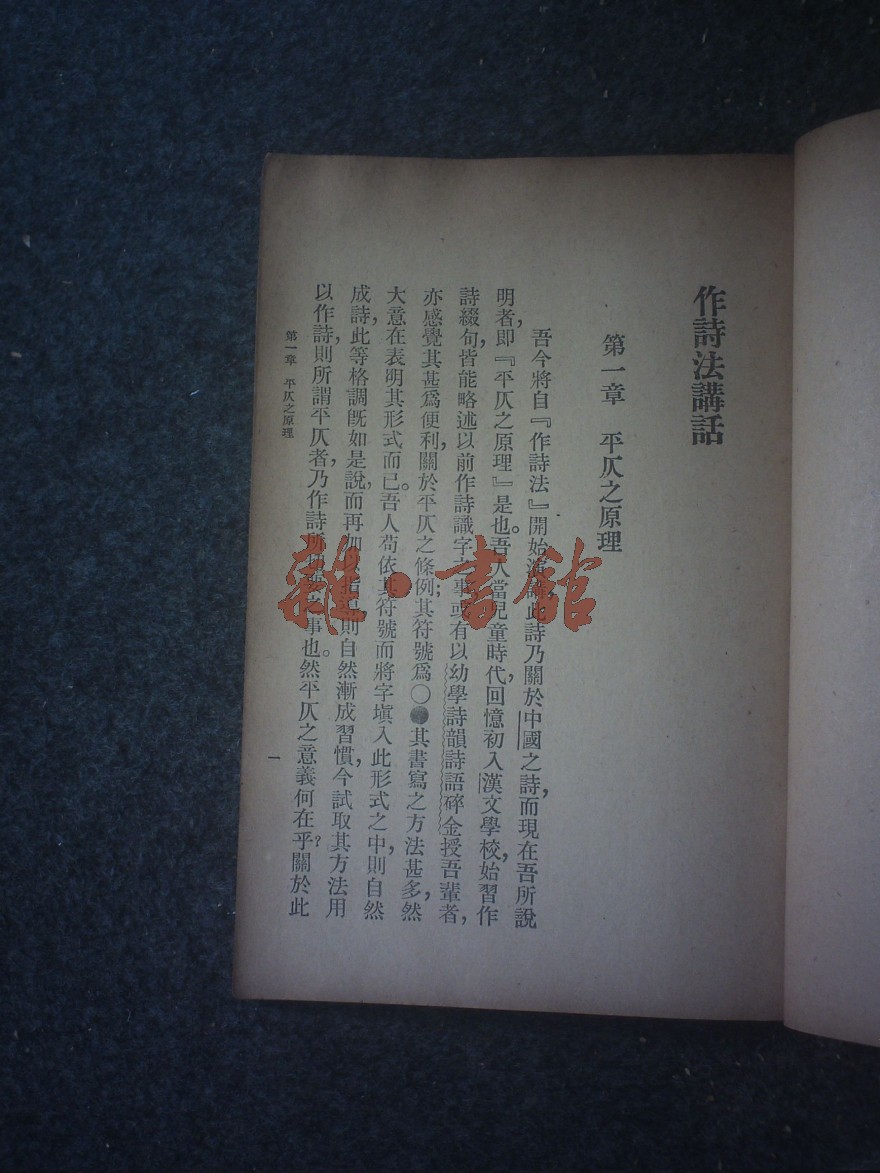 作詩法講話
第一章　平仄之原理
吾今將自『作詩法』開始演講，此詩乃關於中國之詩，而現在吾所說
明者，即『平仄之原理』是也。吾人當兒童時代，回憶初入漢文學校，始習作
詩綴句，皆能略述以前作詩識字之事，或有以幼學詩韻詩語碎金授吾輩者，
亦感覺其甚爲便利，關於平仄之條例；其符號爲○●其書寫之方法甚多，然
大意在表明其形式而已。吾人苟依其符號而將字塡入此形式之中，則自然
成詩，此等格調旣如是說，而再加以指導，則自然漸成習慣，今試取其方法用
以作詩，則所謂平仄者，乃作詩所必要之事也。然平仄之意義何在乎？關於此
第一章　平仄之原理
一
雜·書館